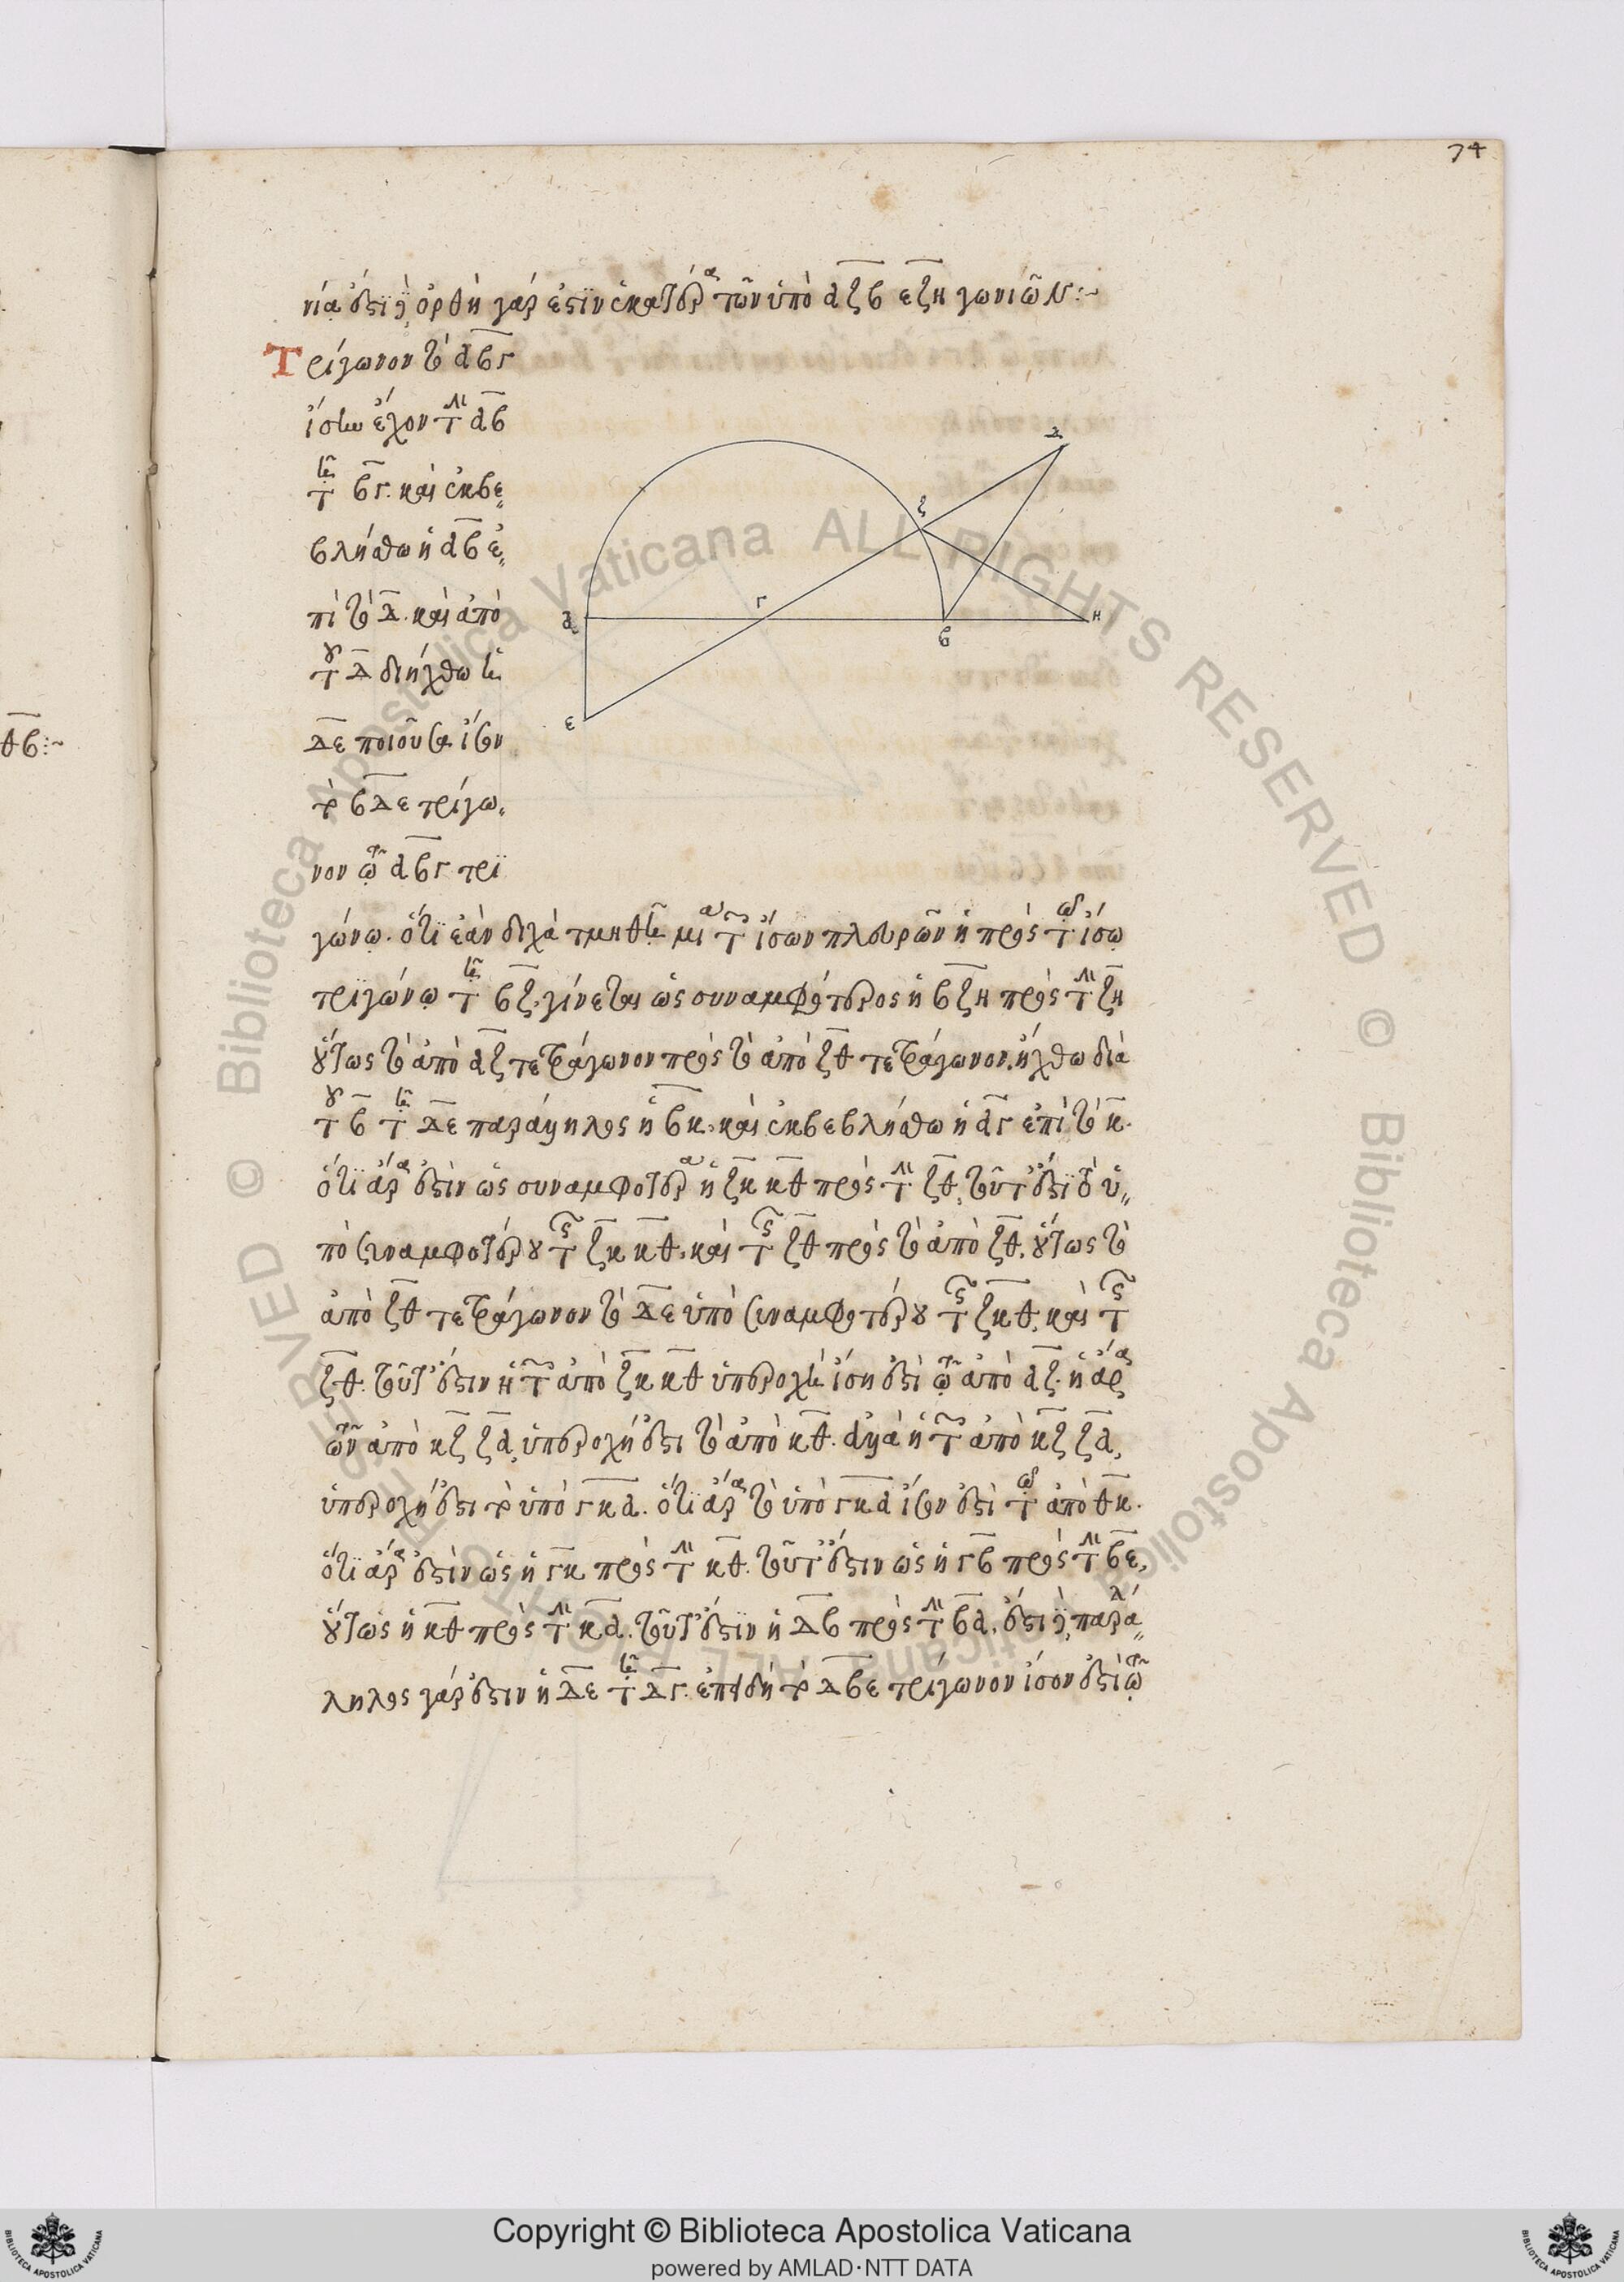 74
νίᾳ ἐστί· ὀρθὴ γάρ ἐστιν ἑκατέρα τῶν ὑπὸ αζβ εζη γωνιῶν:~
Τρίγωνον τὸ αβγ
ἴσην ἔχον τὴν αβ
τῇ βγ. καὶ ἐκβε
βλήσθω ἡ αβ ἐ
πὶ τὸ δ. καὶ ἀπὸ
τοῦ δ διήχθω ἡ
δε ποιοῦσα ἴσον
τὸ βδε τρίγω
νον τῷ αβγ τρι
γώνῳ. ὅτι ἐὰν δίχα τμηθῇ μία τῶν ἴσων πλευρῶν ἡ πρὸς τῷ ἴσῳ
τριγώνῳ τῇ βζ. γίνεται ὡς συναμφότερος ἡ βζη πρὸς τὴν ζη
οὕτως τὸ ἀπὸ αζ τετράγωνον πρὸς τὸ ἀπὸ ζθ τετράγωνον. ἤχθω διὰ
τοῦ β τῇ δε παράλληλος ἡ βκ. καὶ ἐκβεβλήσθω ἡ αγ ἐπὶ τὸ κ.
ὅτι ἄρα ἐστὶν ὡς συναμφότερα ἡ ζκ κθ πρὸς τὴν ζθ, τουτέστι τὸ ὑ
πὸ συναμφοτέρου τῆς ζκ κθ. καὶ τῆς ζθ πρὸς τὸ ἀπὸ ζθ. οὕτως τὸ
ἀπὸ ζθ τετράγωνον τὸ δε ὑπὸ συναμφοτέρου τῆς ζκθ, καὶ τῆς
ζθ. τουτέστιν ἡ τῶν ἀπὸ ζκ κθ ὑπεροχὴ ἴση ἐστὶ τῷ ἀπὸ αζ. ἡ ἄρα
τῶν ἀπὸ κζ ζα, ὑπεροχή ἐστι τὸ ἀπὸ κθ. ἀλλὰ ἡ τῶν ἀπὸ κζ ζα,
ὑπεροχή ἐστι τὸ ὑπὸ γκα. ὅτι ἄρα τὸ ὑπὸ γκα ἴσον ἐστὶ τῷ ἀπὸ θκ.
ὅτι ἄρα ἐστὶν ὡς ἡ γκ πρὸς τὴν κθ. τουτέστιν ὡς ἡ γβ πρὸς τὴν βε,
οὕτως ἡ κθ πρὸς τὴν κα. τουτέστιν ἡ δβ πρὸς τὴν βα. ἔστι παρά
λληλος γάρ ἐστιν ἡ δε τῇ δγ. ἐπειδὴ τὸ δβε τρίγωνον ἴσον ἐστὶ τῷ
δ
ζ
γ
α
β
η
ε
θβ:~
© Biblioteca Apostolica Vaticana ALL RIGHTS RESERVED
© Biblioteca Apostolica Vaticana ALL RIGHTS RESERVED
Copyright © Biblioteca Apostolica Vaticana
powered by AMLAD·NTT DATA
BIBLIOTECA APOSTOLICA VATICANA
BIBLIOTECA APOSTOLICA VATICANA